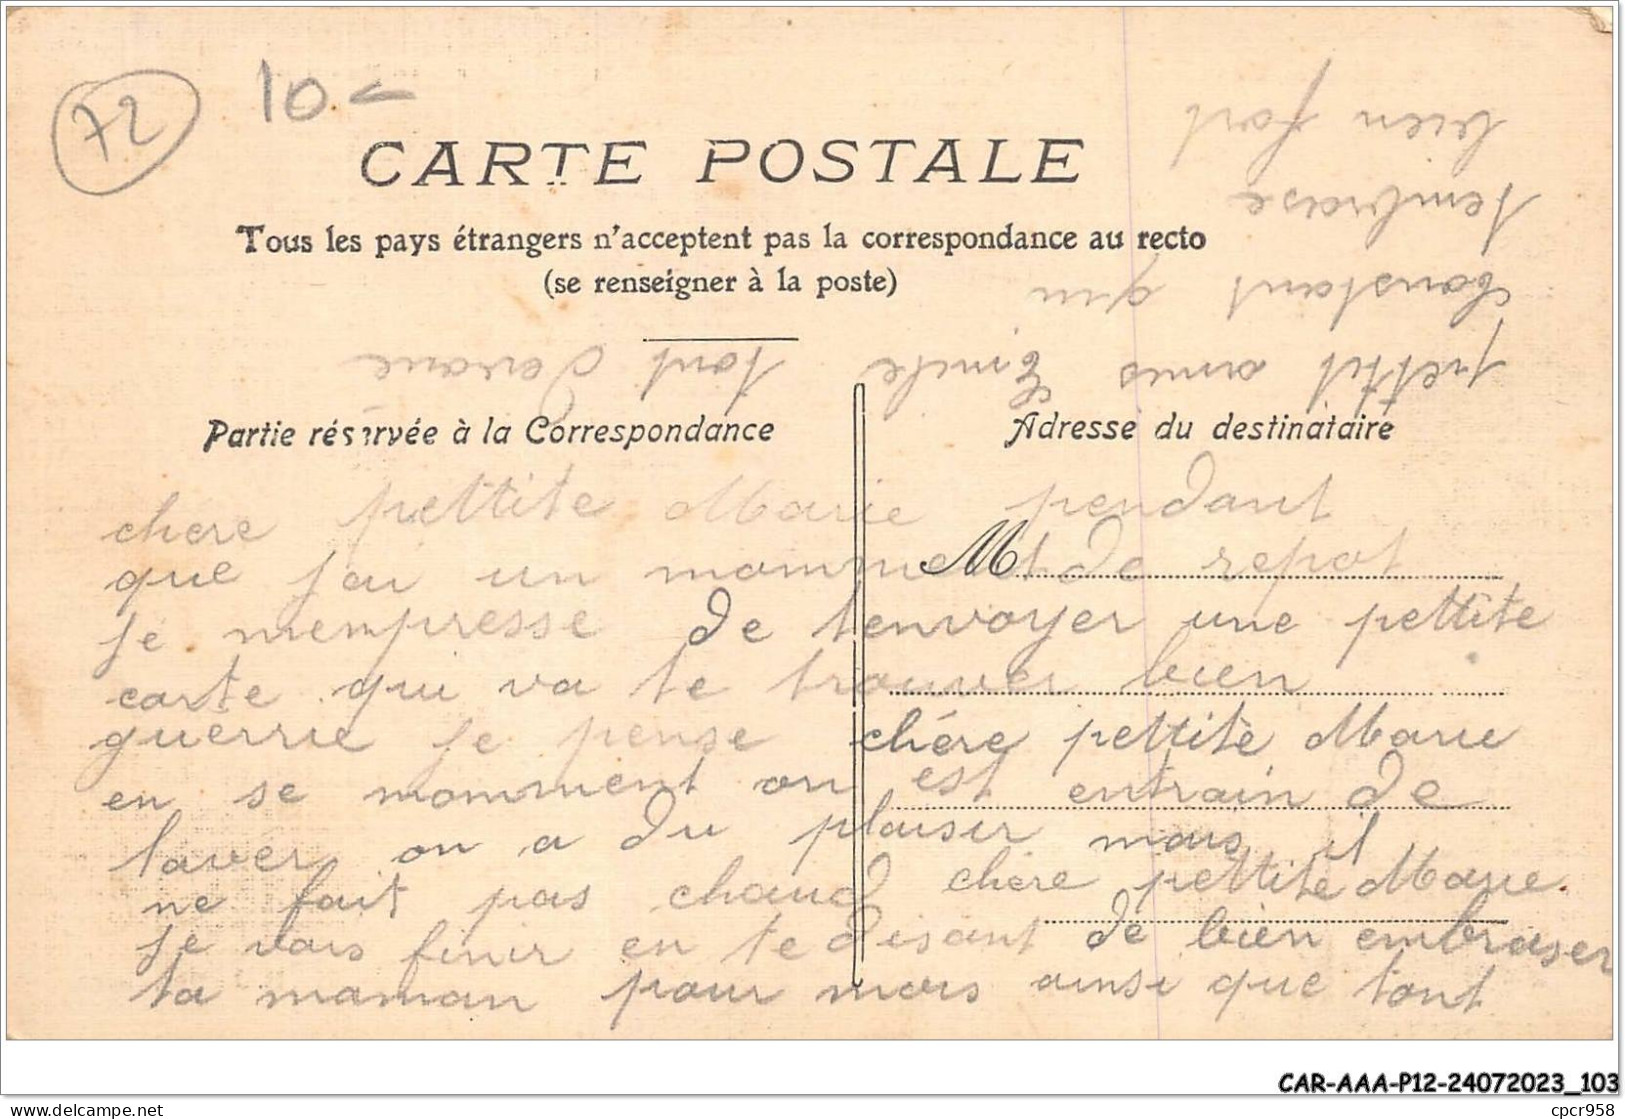 72
10
CARTE POSTALE
Tous les pays étrangers n'acceptent pas la correspondance au recto
(se renseigner à la poste)
Partie réservée à la Correspondance
Adresse du destinataire
M
chere pettite Marie pendant
que jai un momment de repot
je mempresse de tenvoyer une pettite
carte qui va te trouver bien
guerrie je pense chére pettite Marie
en se momment on est entrain de
laver on a du plaisir mais il
ne fait pas chaud chere pettite Marie
je vais finir en te disant de bien embraser
ta maman pour mois ainsi que tont
pettit amis Emile tont devoue
Constant qui
tembrase
bien fort
CAR-AAA-P12-24072023_103
delcampe.net
cpcr958